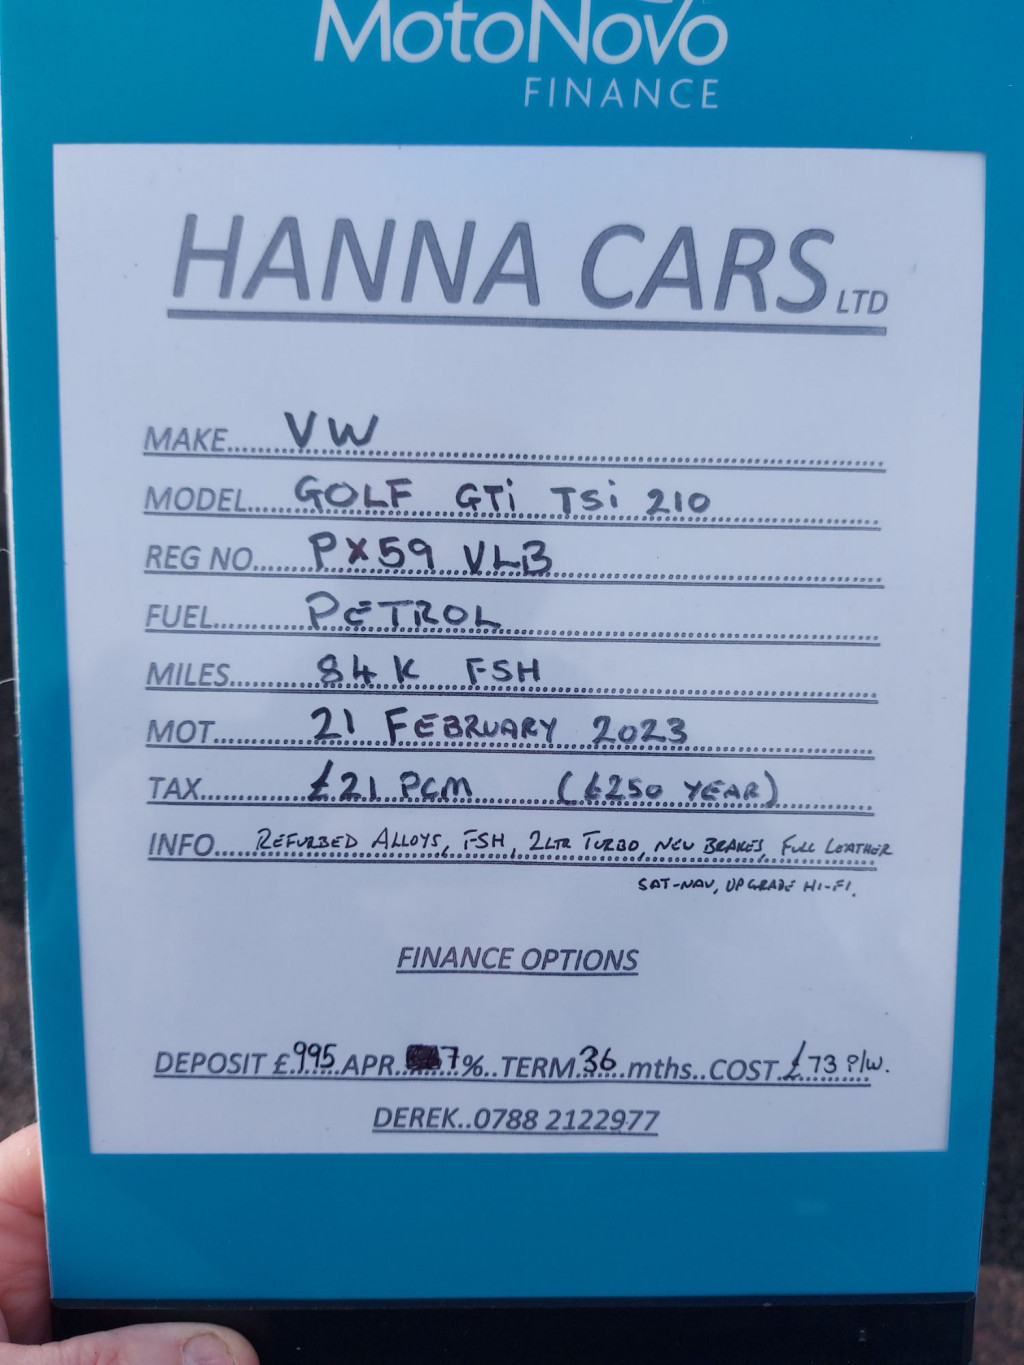 MotoNovo
FINANCE
HANNA CARS LTD
MAKE......VW
MODEL.....GOLF GTi TSi 210
REG NO......PX59 VLB
FUEL......PETROL
MILES......84K FSH
MOT......21 FEBRUARY 2023
TAX......£21 PCM (£250 YEAR)
INFO.....REFURBED ALLOYS, FSH, 2LTR TURBO, NEW BRAKES, FULL LEATHER
SAT-NAV, UPGRADE HI-FI.
FINANCE OPTIONS
DEPOSIT £995 APR...7%..TERM.36..mths..COST.£73 P/W.
DEREK..0788 2122977